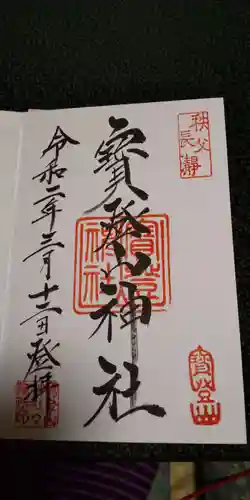 秩父
長瀞
寳登山神社
寳登山神社
寳登山
令和二年三月十二日登拝